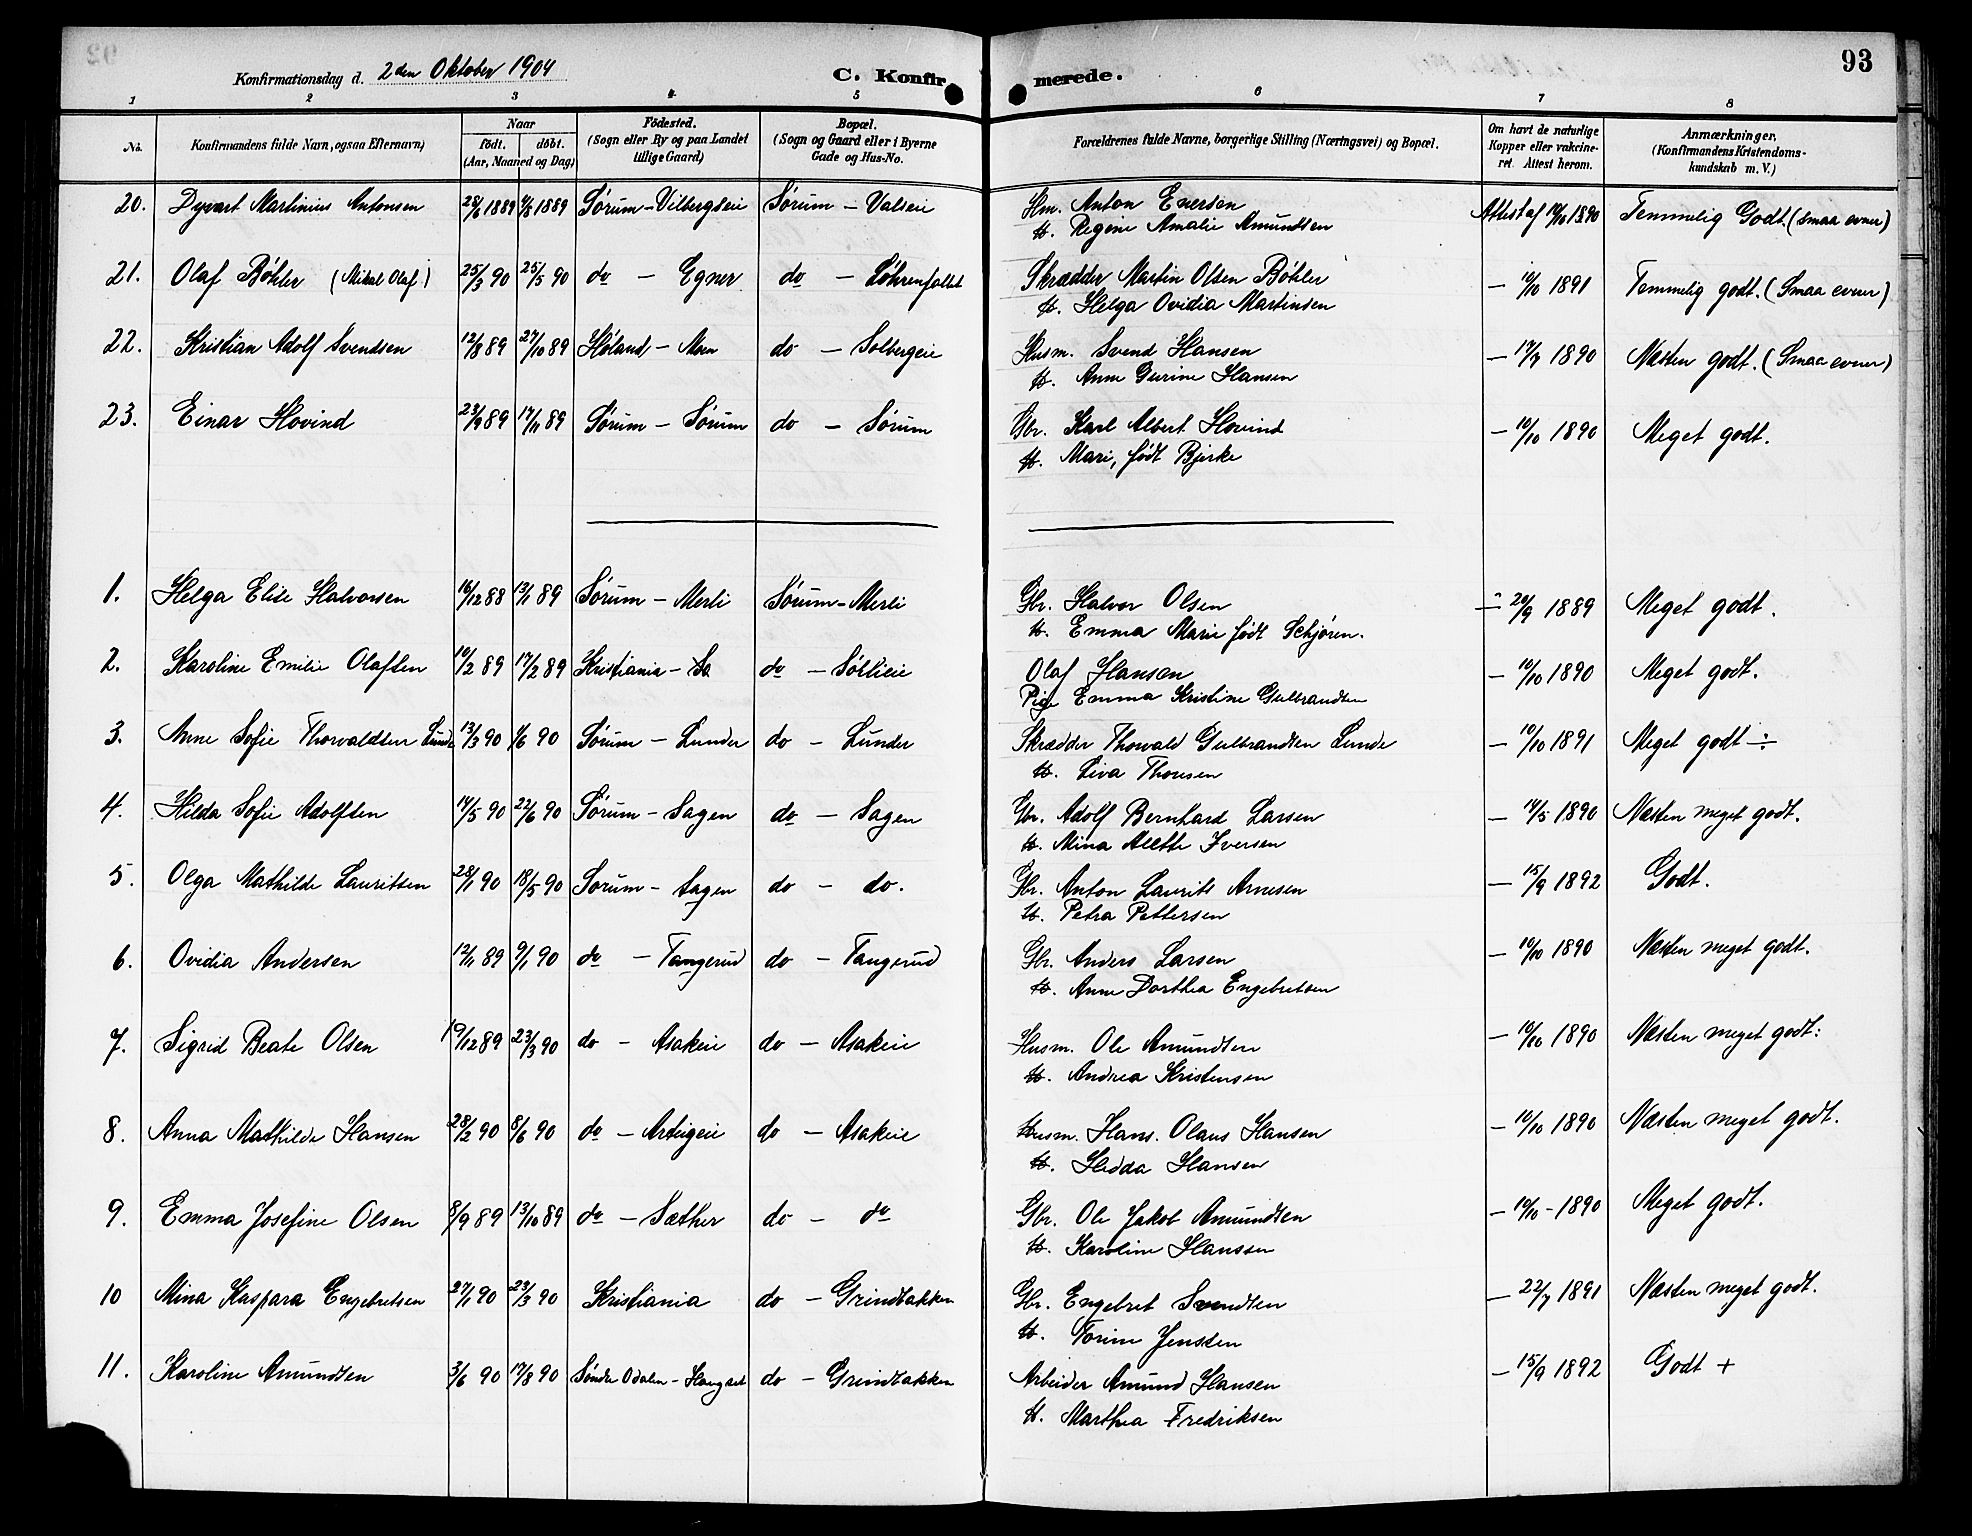 93
Konfirmationsdag d. 2den Oktober 1904
C. Konfir merede.
1 2 3 4 5 6 7 8
No. Konfirmandens fulde Navn, ogsaa Efternavn) Naar født. døbt. (Aar, Maaned og Dag) Fødested. (Sogn eller By og paa Landet tillige Gaard) Bopæl. (Sogn og Gaard eller i Byerne Gade og Hus-No. Forældrenes fulde Navne, borgerlige Stilling (Næringsvei) og Bopæl. Om havt de naturlige Kopper eller vakcineret. Attest herom. Anmærkninger. (Konfirmandens Kristendomskundskab m. V.)
20. Dyvart Martinius Antonsen 28/6 1889 4/8 1889 Sørum - Vilbergseie Sørum - Valseie Hm. Anton Enersen Attest af 10/10 1890 Temmelig Godt. (smaa evner)
H. Regine Amalie Amundsen
21. Olaf Bøhler (Mikal Olaf) 25/3 90 25/5 90 do - Egner do - Løhrenfallet Skrædder Martin Olsen Bøhler - 10/10 1891 Temmelig godt. (Smaa evner)
H. Helga Ovidia Martinsen
22. Kristian Adolf Svendsen 12/8 89 27/10 89 Høland - Moen do - Solbergeie Husm. Svend Hansen - 17/7 1890 Næsten godt. (Smaa evner)
H. Anne Gurine Hansen
23. Einar Hovind 23/9 89 17/11 89 Sørum - Sørum do - Sørum Gbr. Karl Albert Hovind - 10/10 1890 Meget godt.
H. Mari, født Bjerke
1. Helga Elise Halvorsen 16/12 88 13/1 89 Sørum - Merli Sørum - Merli Gbr. Halvor Olsen - 20/9 1889 Meget godt.
H. Emma Marie født Schjøren.
2. Karoline Emilie Olafsen 10/2 89 17/2 89 Kristiania - do - Sørlieie Olaf Hansen - 10/10 1890 Meget godt.
Pige Emma Kristine Gulbrandsen
3. Anne Sofie Thorvaldsen Lunde 13/3 90 1/6 90 Sørum - Lunder do - Lunder Skrædder Thorvald Gulbrandsen Lunde - 10/10 1891 Meget godt ÷
H. Liva Thoresen
4. Hilda Sofie Adolfsen 14/5 90 22/6 90 Sørum - Sagen do - Sagen Gbr. Adolf Bernhard Larsen - 14/5 1890 Næsten meget godt.
H. Mina Alette Iversen
5. Olga Mathilde Lauritsen 28/1 90 18/5 90 Sørum - Sagen do - do. Gbr. Anton Laurits Arnesen - 15/9 1892 Godt.
H. Petra Pettersen
6. Ovidia Andersen 12/11 89 9/1 90 do - Tangerud do - Tangerud Gbr. Anders Larsen - 10/10 1890 Næsten meget godt.
H. Anne Dorthea Engebretsen
7. Sigrid Beate Olsen 19/12 89 23/3 90 do - Asakeie do - Asakeie Husm. Ole Amundsen - 10/10 1890 Næsten meget godt:
H. Andrea Kristensen
8. Anna Mathilde Hansen 28/2 90 8/6 90 do - Arteigeie do - Asakeie Husm. Hans. Olaus Hansen - 10/10 1890 Næsten meget godt.
H. Hedda Hansen
9. Emma Josefine Olsen 8/9 89 13/10 89 do - Sæther do - do Gbr. Ole Jakob Amundsen - 10/10 - 1890 Meget godt.
H. Karoline Hanssen
10 Mina Kaspara Engebretsen 27/1 90 23/3 90 Kristiania do - Grindbakken Gbr. Engebret Svendsen - 22/7 1891 Næsten meget godt.
H. Torine Jenssen
11. Karoline Amundsen 3/6 90 17/8 90 Søndre Odalen - do - Grindbakken Arbeider Amund Hansen - 15/9 1892 Godt +
H. Marthea Fredriksen